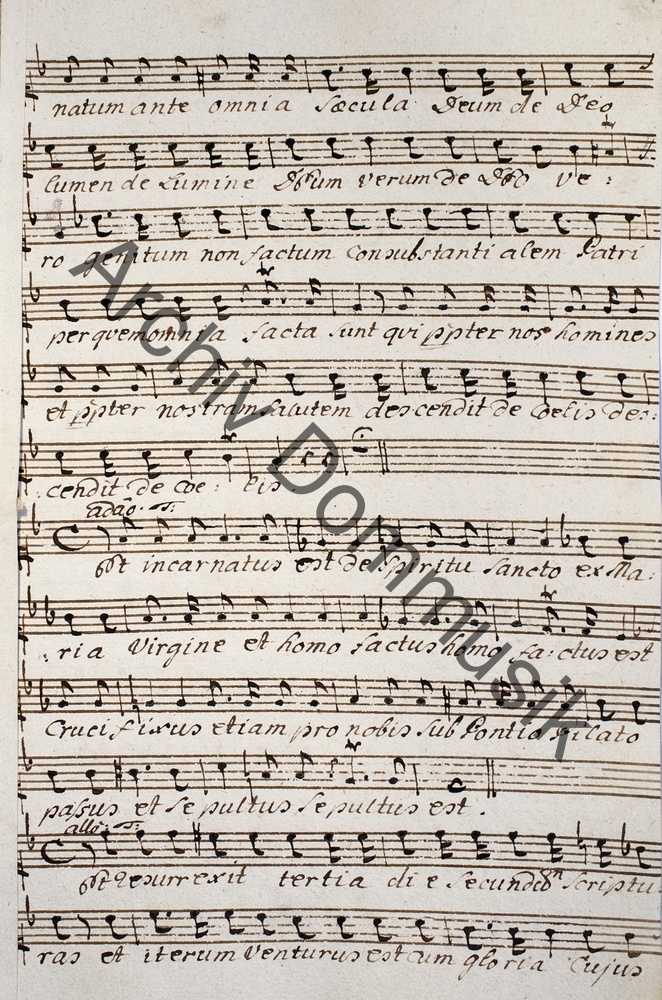 natum ante omnia sæcula Deum de Deo
lumen de Lumine Deum verum de Deo ve:
ro genitum non factum Consubstanti alem Patri
per quem omnia facta sunt qui ppter nos homines
et ppter nostram salutem descendit de Coelis des:
cendit de Coe: lis
adao. T:
Et incarnatus est de Spiritu Sancto ex Ma:
ria Virgine et homo factus homo fa:ctus est
Crucifixus etiam pro nobis sub Pontio Pilato
passus et se pultus sepultus est.
allo: T:
Et Resurrexit tertia di e secundum Scriptu
ras et iterum Venturus est cum gloria Cujus
Archiv Dommusik